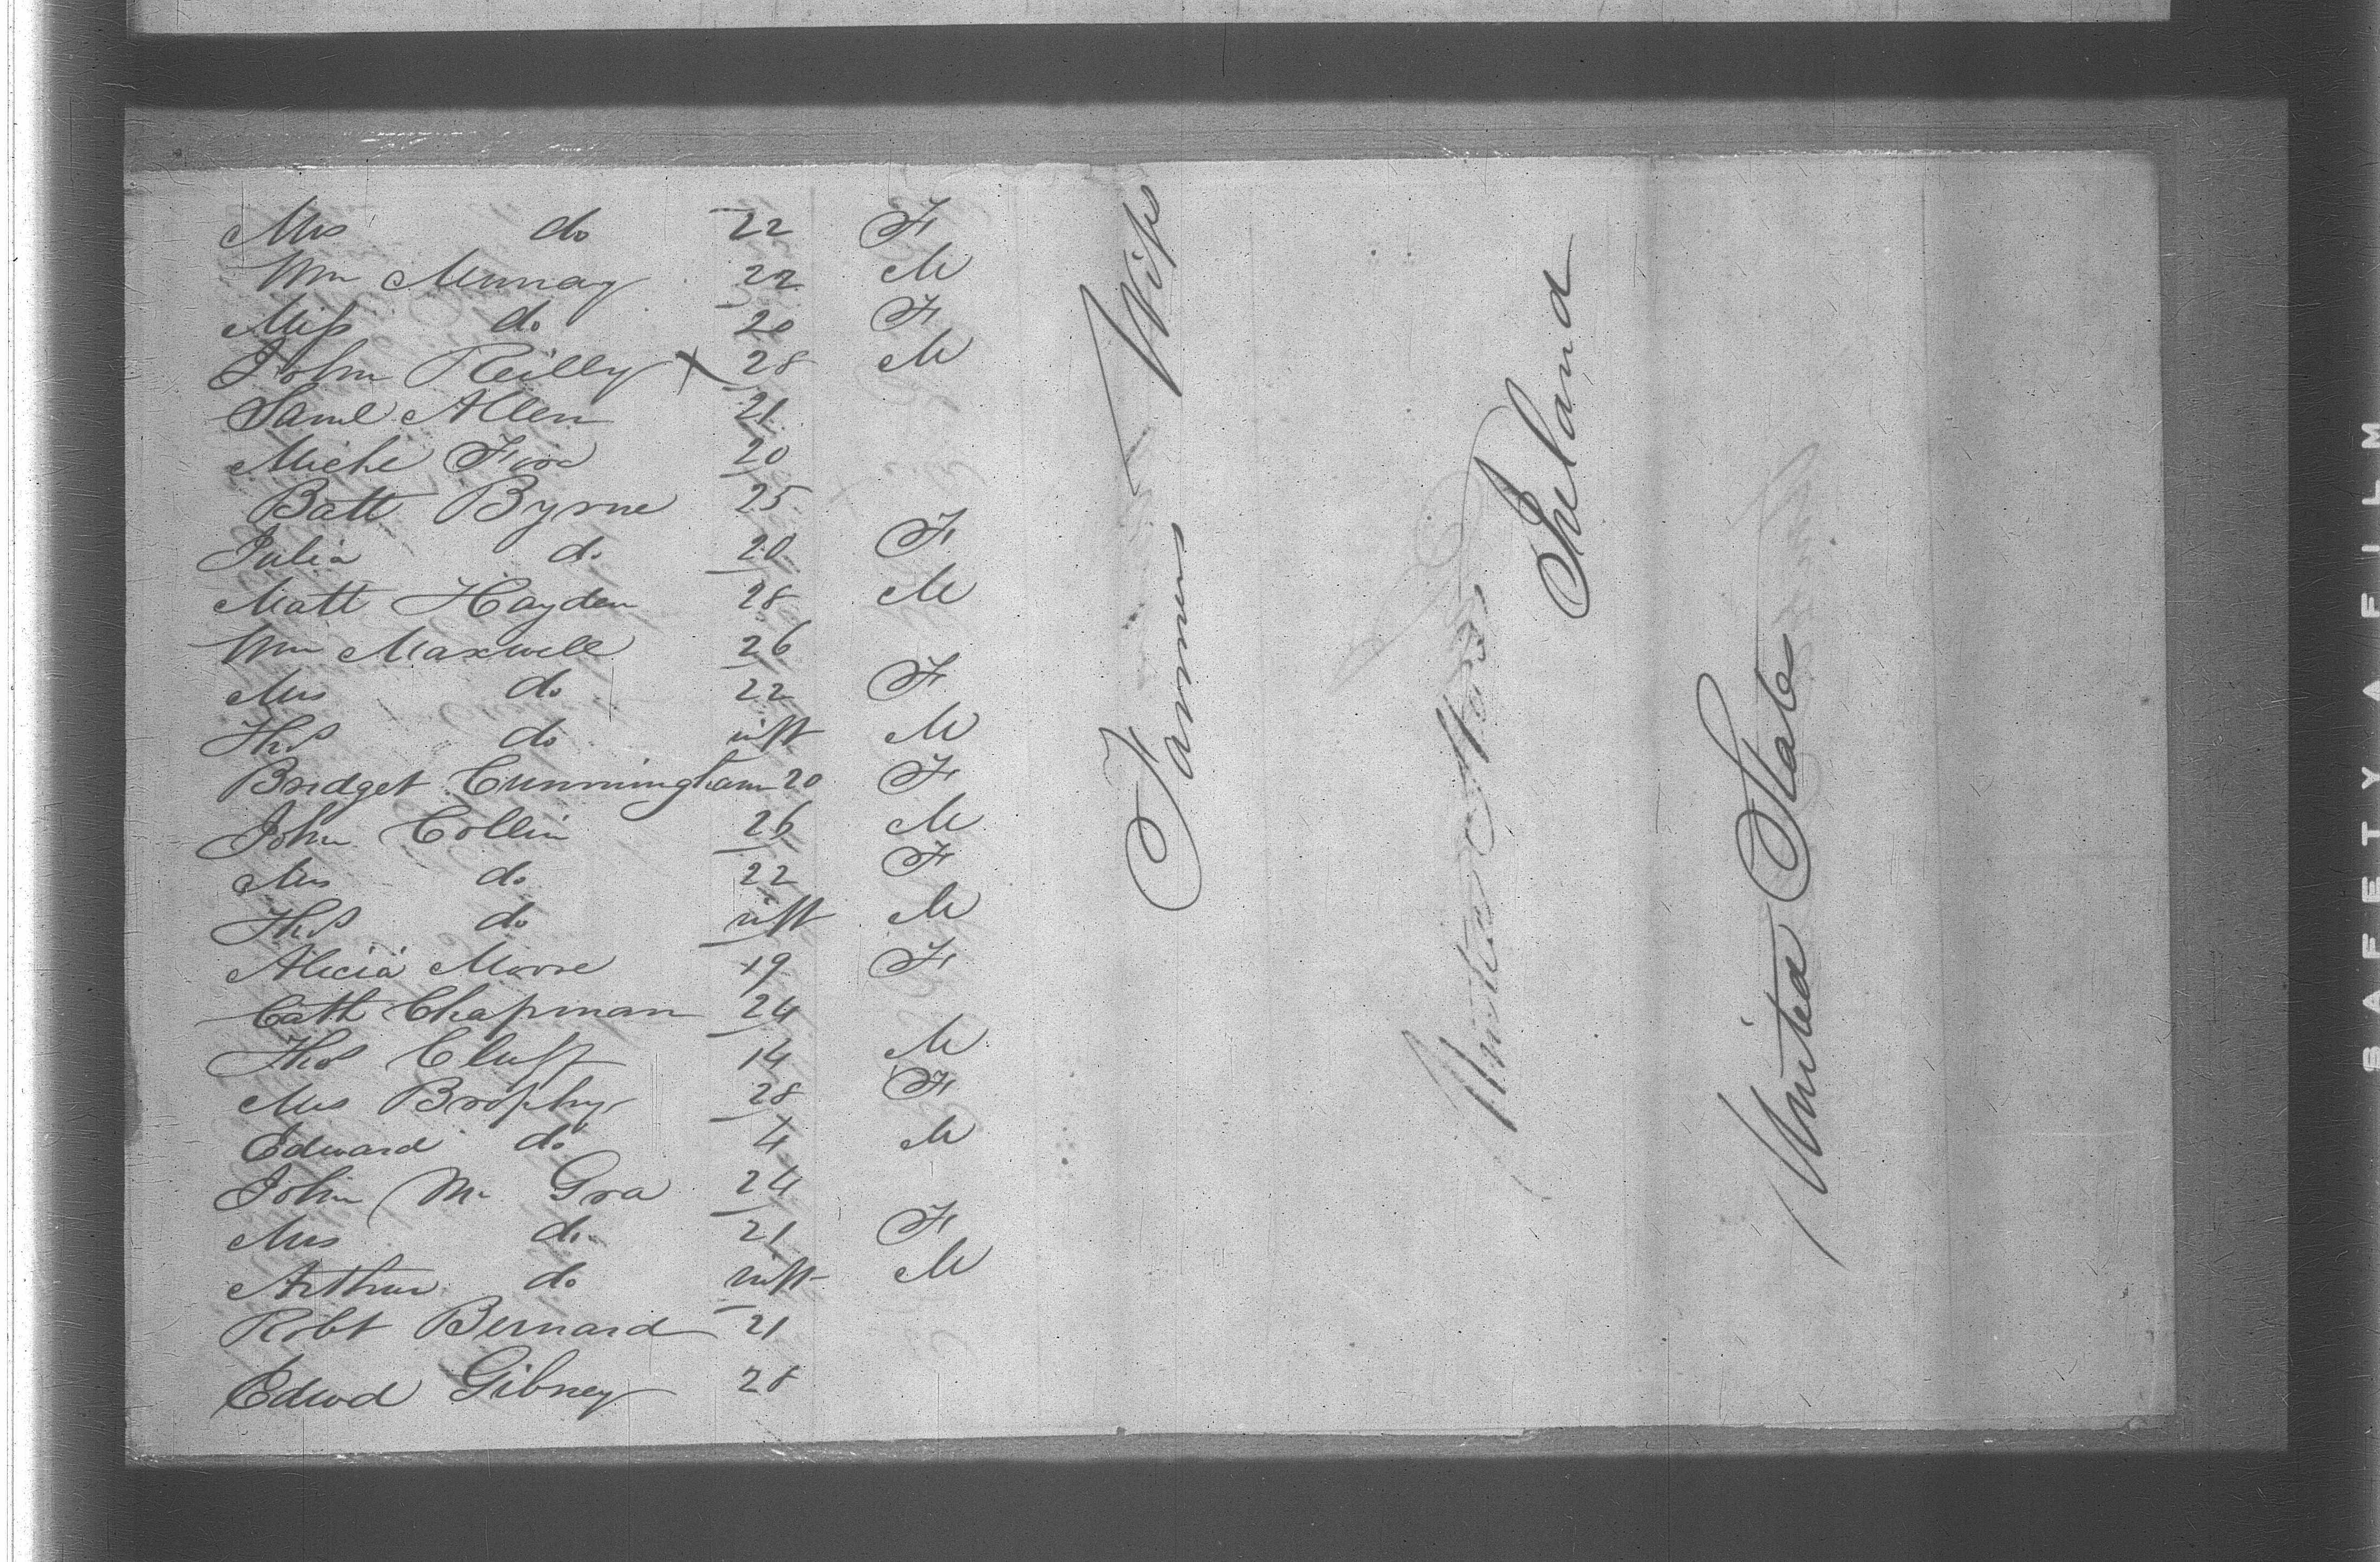 Mrs do 22 F
Wm Murray 22 M
Miss do 20 F
John Reilly X 28 M
Saml Allen 21
Michl 20
Batt Byrne 25
Julia do 20 F
Matt Hayden 28 M
Wm Maxwell 26
Mrs do 22 F
Thos do inft M
Bridget Cunningham 20 F
John Collin 26 M
Mrs do 22 F
Thos do inft M
Alicia Moore 19 F
Cath Chapman 24
Thos Cluff 14 M
Mrs Brophy 28 F
Edward do 4 M
John Mc Gra 24
Mrs do 21 F
Arthur do inft M
Robt Bernard 21
Edwd Gibney 28
Farmer Wife
United States
Ireland
United States
SAFETY FILM